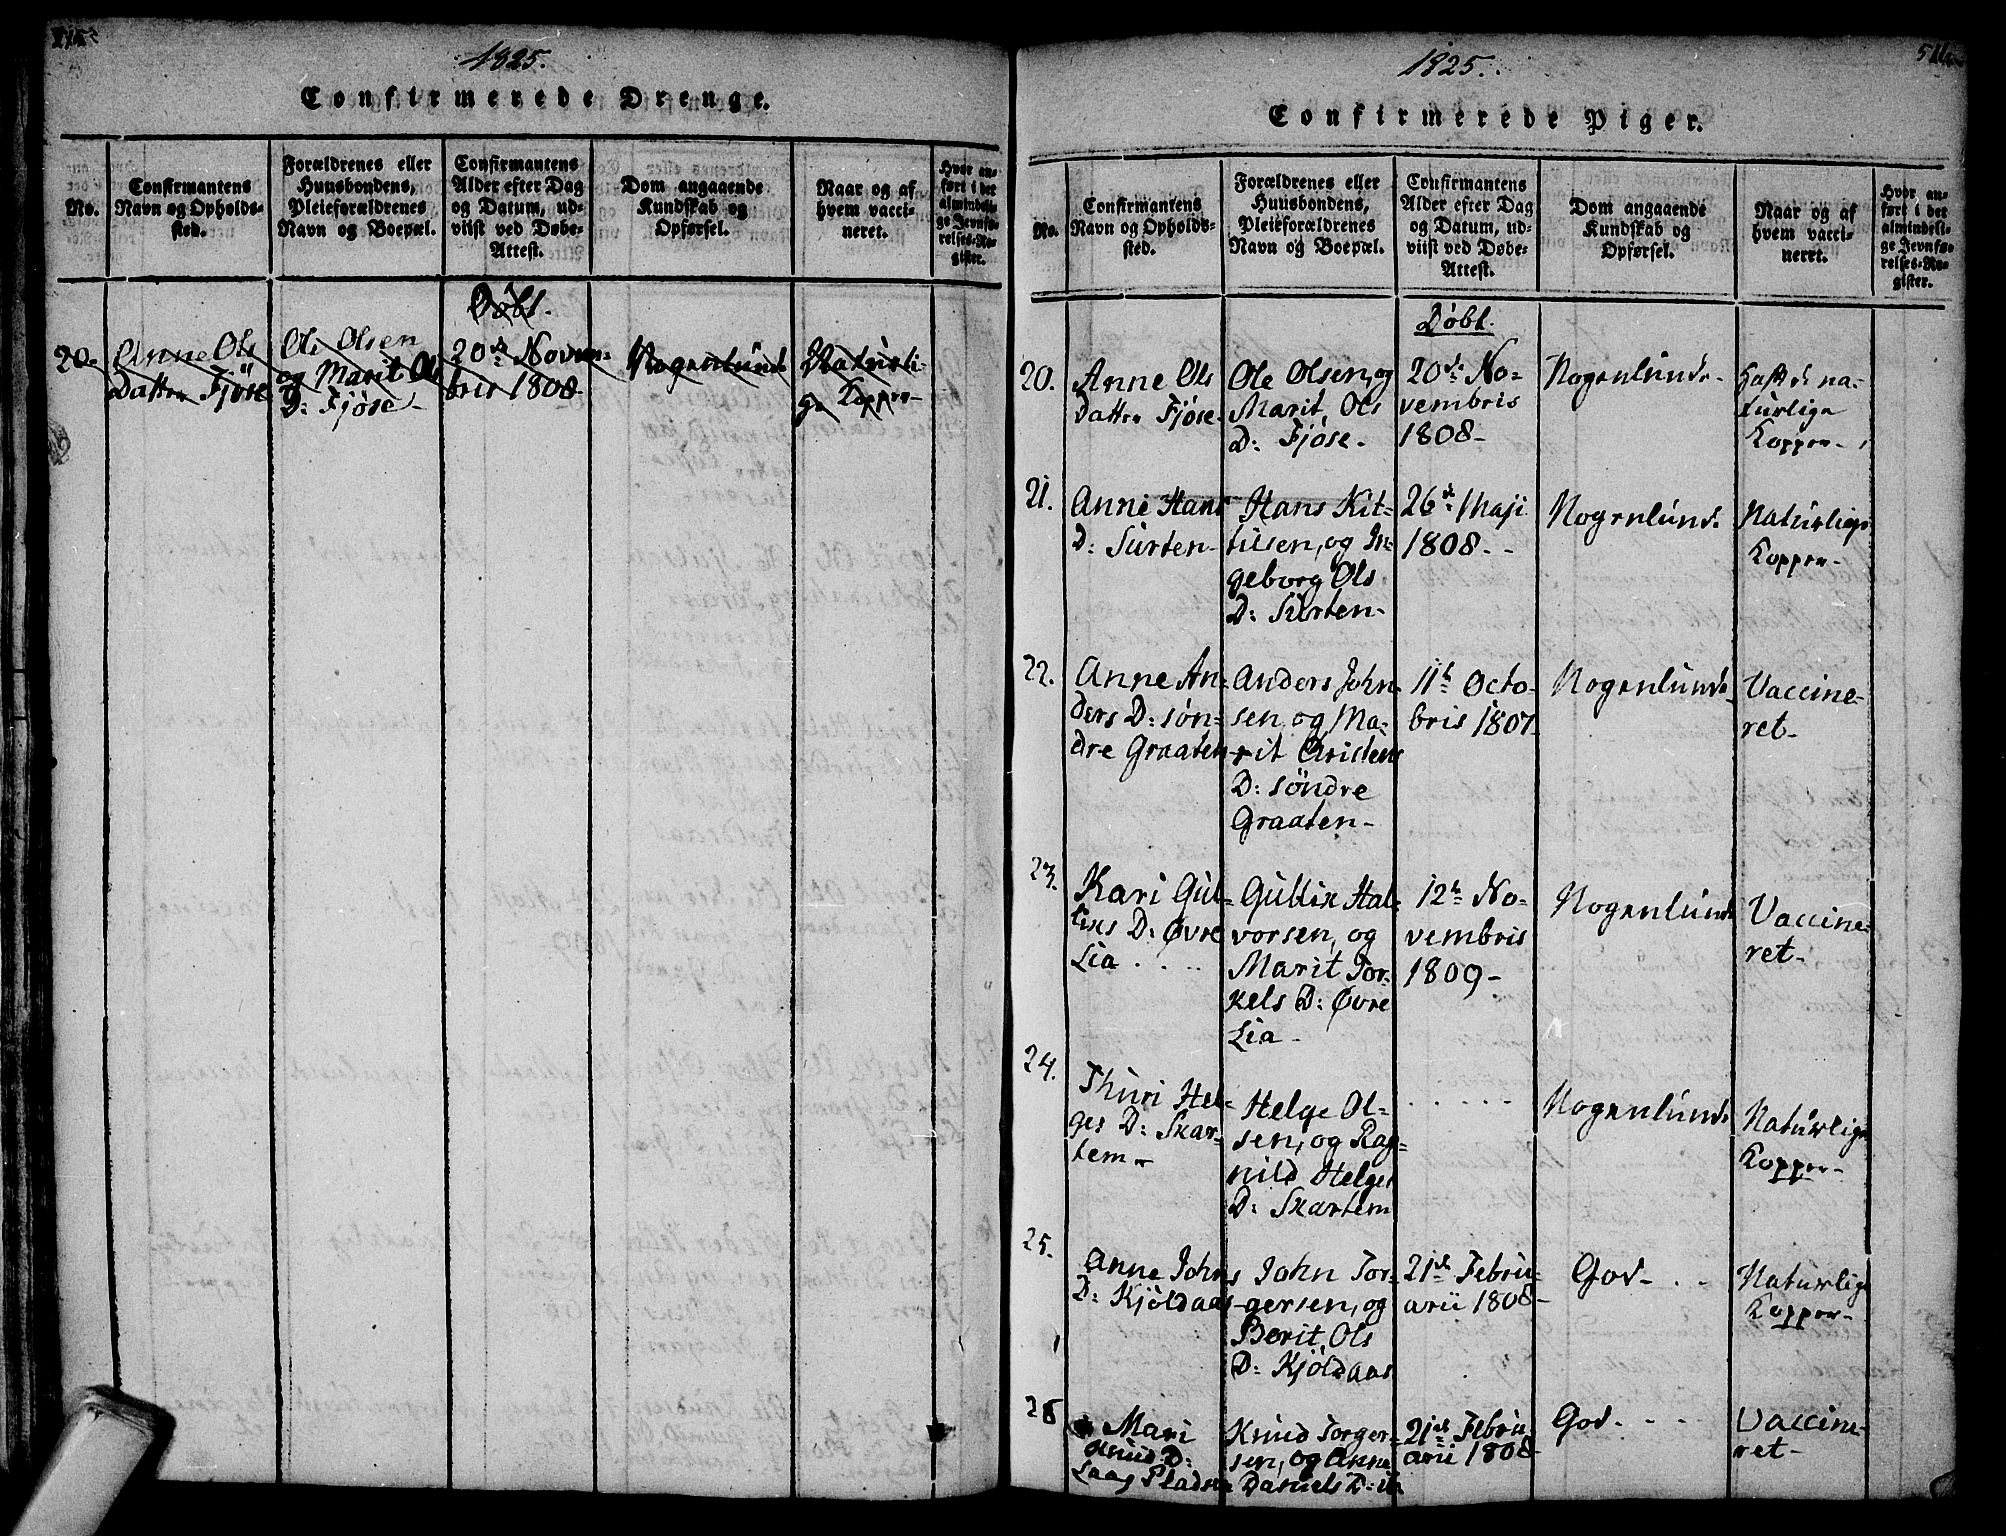 515
1825.
Confirmerede Drenge.
No.
Confirmantens
Navn og Opholds-
sted.
Forældrenes eller
Huusbondens,
Pleieforældrenes
Navn og Boepæl.
Confirmantens
Alder efter Dag
og Datum, ud-
viist ved Døbe-
Attest.
Dom angaaende
Kundskab og
Opførsel.
Naar og af
hvem vacci-
neret.
Hvor an-
ført i det
almindeli-
ge Jevnfø-
relses-Re-
gister.
Döbt.
20.
Anne Ols
Datter Fjöse
Ole Olsen
og Marit Ols
D: Fjöse-
20de Novem-
bris 1808
Nogenlunde
Naturli-
ge Kopper-
516
1825.
Confirmerede Piger.
No.
Confirmantens
Navn og Opholds-
sted.
Forældrenes eller
Huusbondens,
Pleieforældrenes
Navn og Boepæl.
Confirmantens
Alder efter Dag
og Datum, ud-
viist ved Døbe-
Attest.
Dom angaaende
Kundskab og
Opførsel.
Naar og af
hvem vacci-
neret.
Hvor an-
ført i det
almindeli-
ge Jevnfø-
relses-Re-
gister.
Döbt.
20.
Anne Ols
Datter Fjöse-
Ole Olsen, og
Marit, Ols
D: Fjöse-
20de No-
vembris
1808-
Nogenlunde-
Haft de na-
turlige
Kopper-
21.
Anne Hans
D: Surten-
Hans Kit-
tilsen, og In-
geborg Ols
D: Surten-
26de Maji
1808--
Nogenlunde
Naturlige
Kopper-
22.
Anne An-
ders D: søn-
dre Graaten-
Anders John-
sen, og Ma-
rit Cristens
D: söndre
Graaten-
11te Octo-
bris 1807-
Nogenlunde
Vaccine-
ret-
23.
Kari Gul-
liks D: Øvre
Lia....
Gullik Hal-
vorsen, og
Marit Tor-
kels D: Øvre
Lia-
12te No-
vembris
1809-
Nogenlunde
Vaccine-
ret-
24.
Thuri Hel-
ges D: Skar-
tem-
Helge Ol-
sen, og Rag-
nild Helges
D: Skartem
.....
Nogenlunde
Naturlige
Kopper-
25.
Anne Johns
D: Kjöldaas-
John Tor-
gersen, og
Berit, Ols
D: Kjöldaas
21de Febru-
arii 1808-
God-..
Naturlige
Kopper-
26
Mari
Knud D:
Laag Pladsen
Knud Torger-
sen, og Anne
Daniels D: ib
21de Febru
arii 1808
God----
Vaccine-
ret-